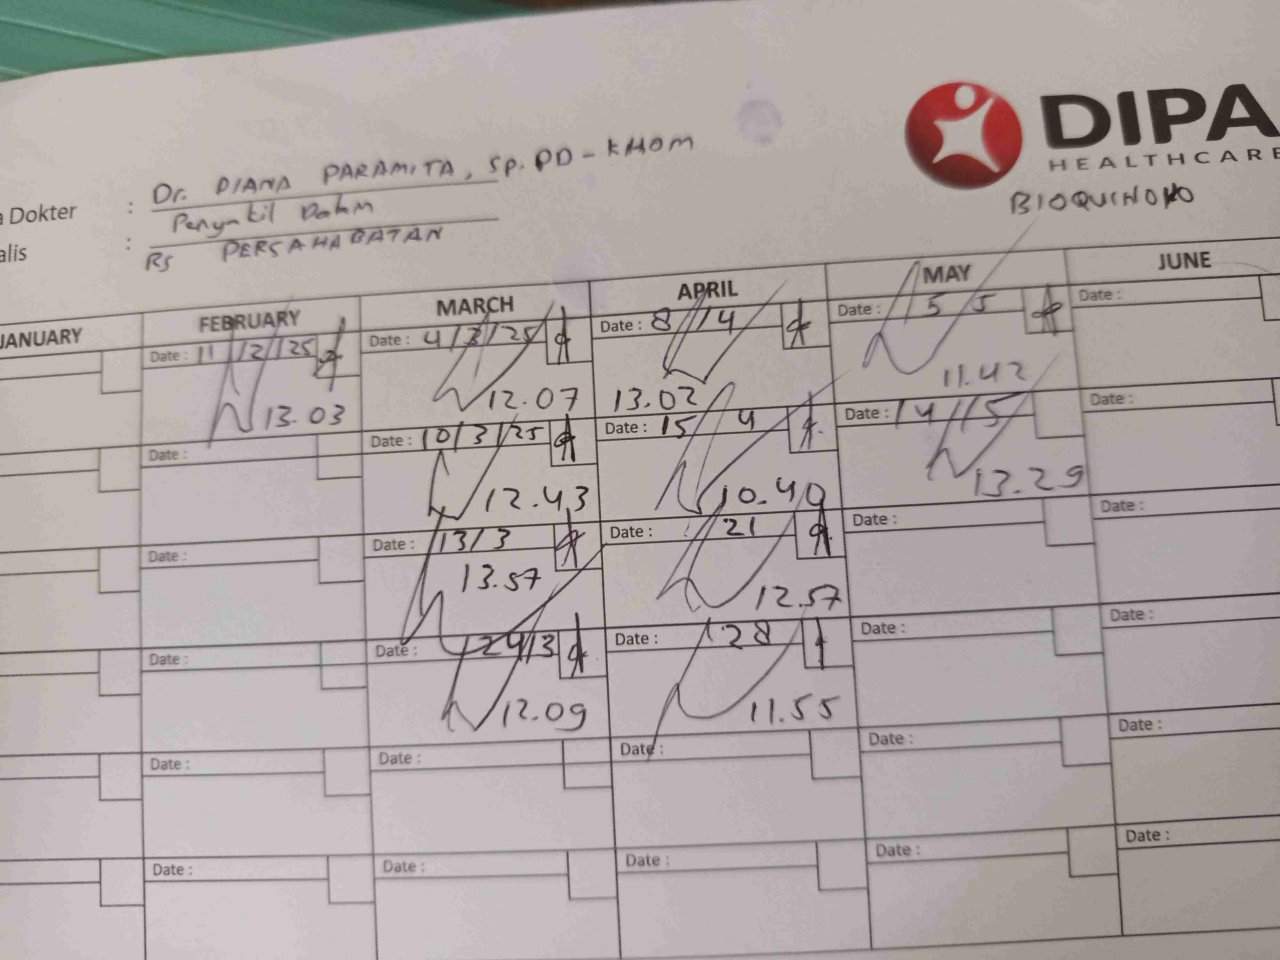 DIPA
HEALTHCARE
BIOQUINOKO
a Dokter : Dr. DIANA PARAMITA, Sp.PD-KHOM
alis : Penyakit Dalam
RS PERSAHABATAN
JANUARY FEBRUARY MARCH APRIL MAY JUNE
Date : 11/2/25 Date : 4/3/25 Date : 8/4 Date : 5 5 Date :
13.03 12.07 13.02 11.42
Date : Date : 10/3/25 Date : 15 4 Date : 14/5 Date :
12.43 10.40 13.29
Date : Date : 13/3 Date : 21 Date : Date :
13.57 12.57
Date : Date : 24/3 Date : 28 Date : Date :
12.09 11.55
Date : Date : Date : Date : Date :
Date : Date : Date : Date : Date :